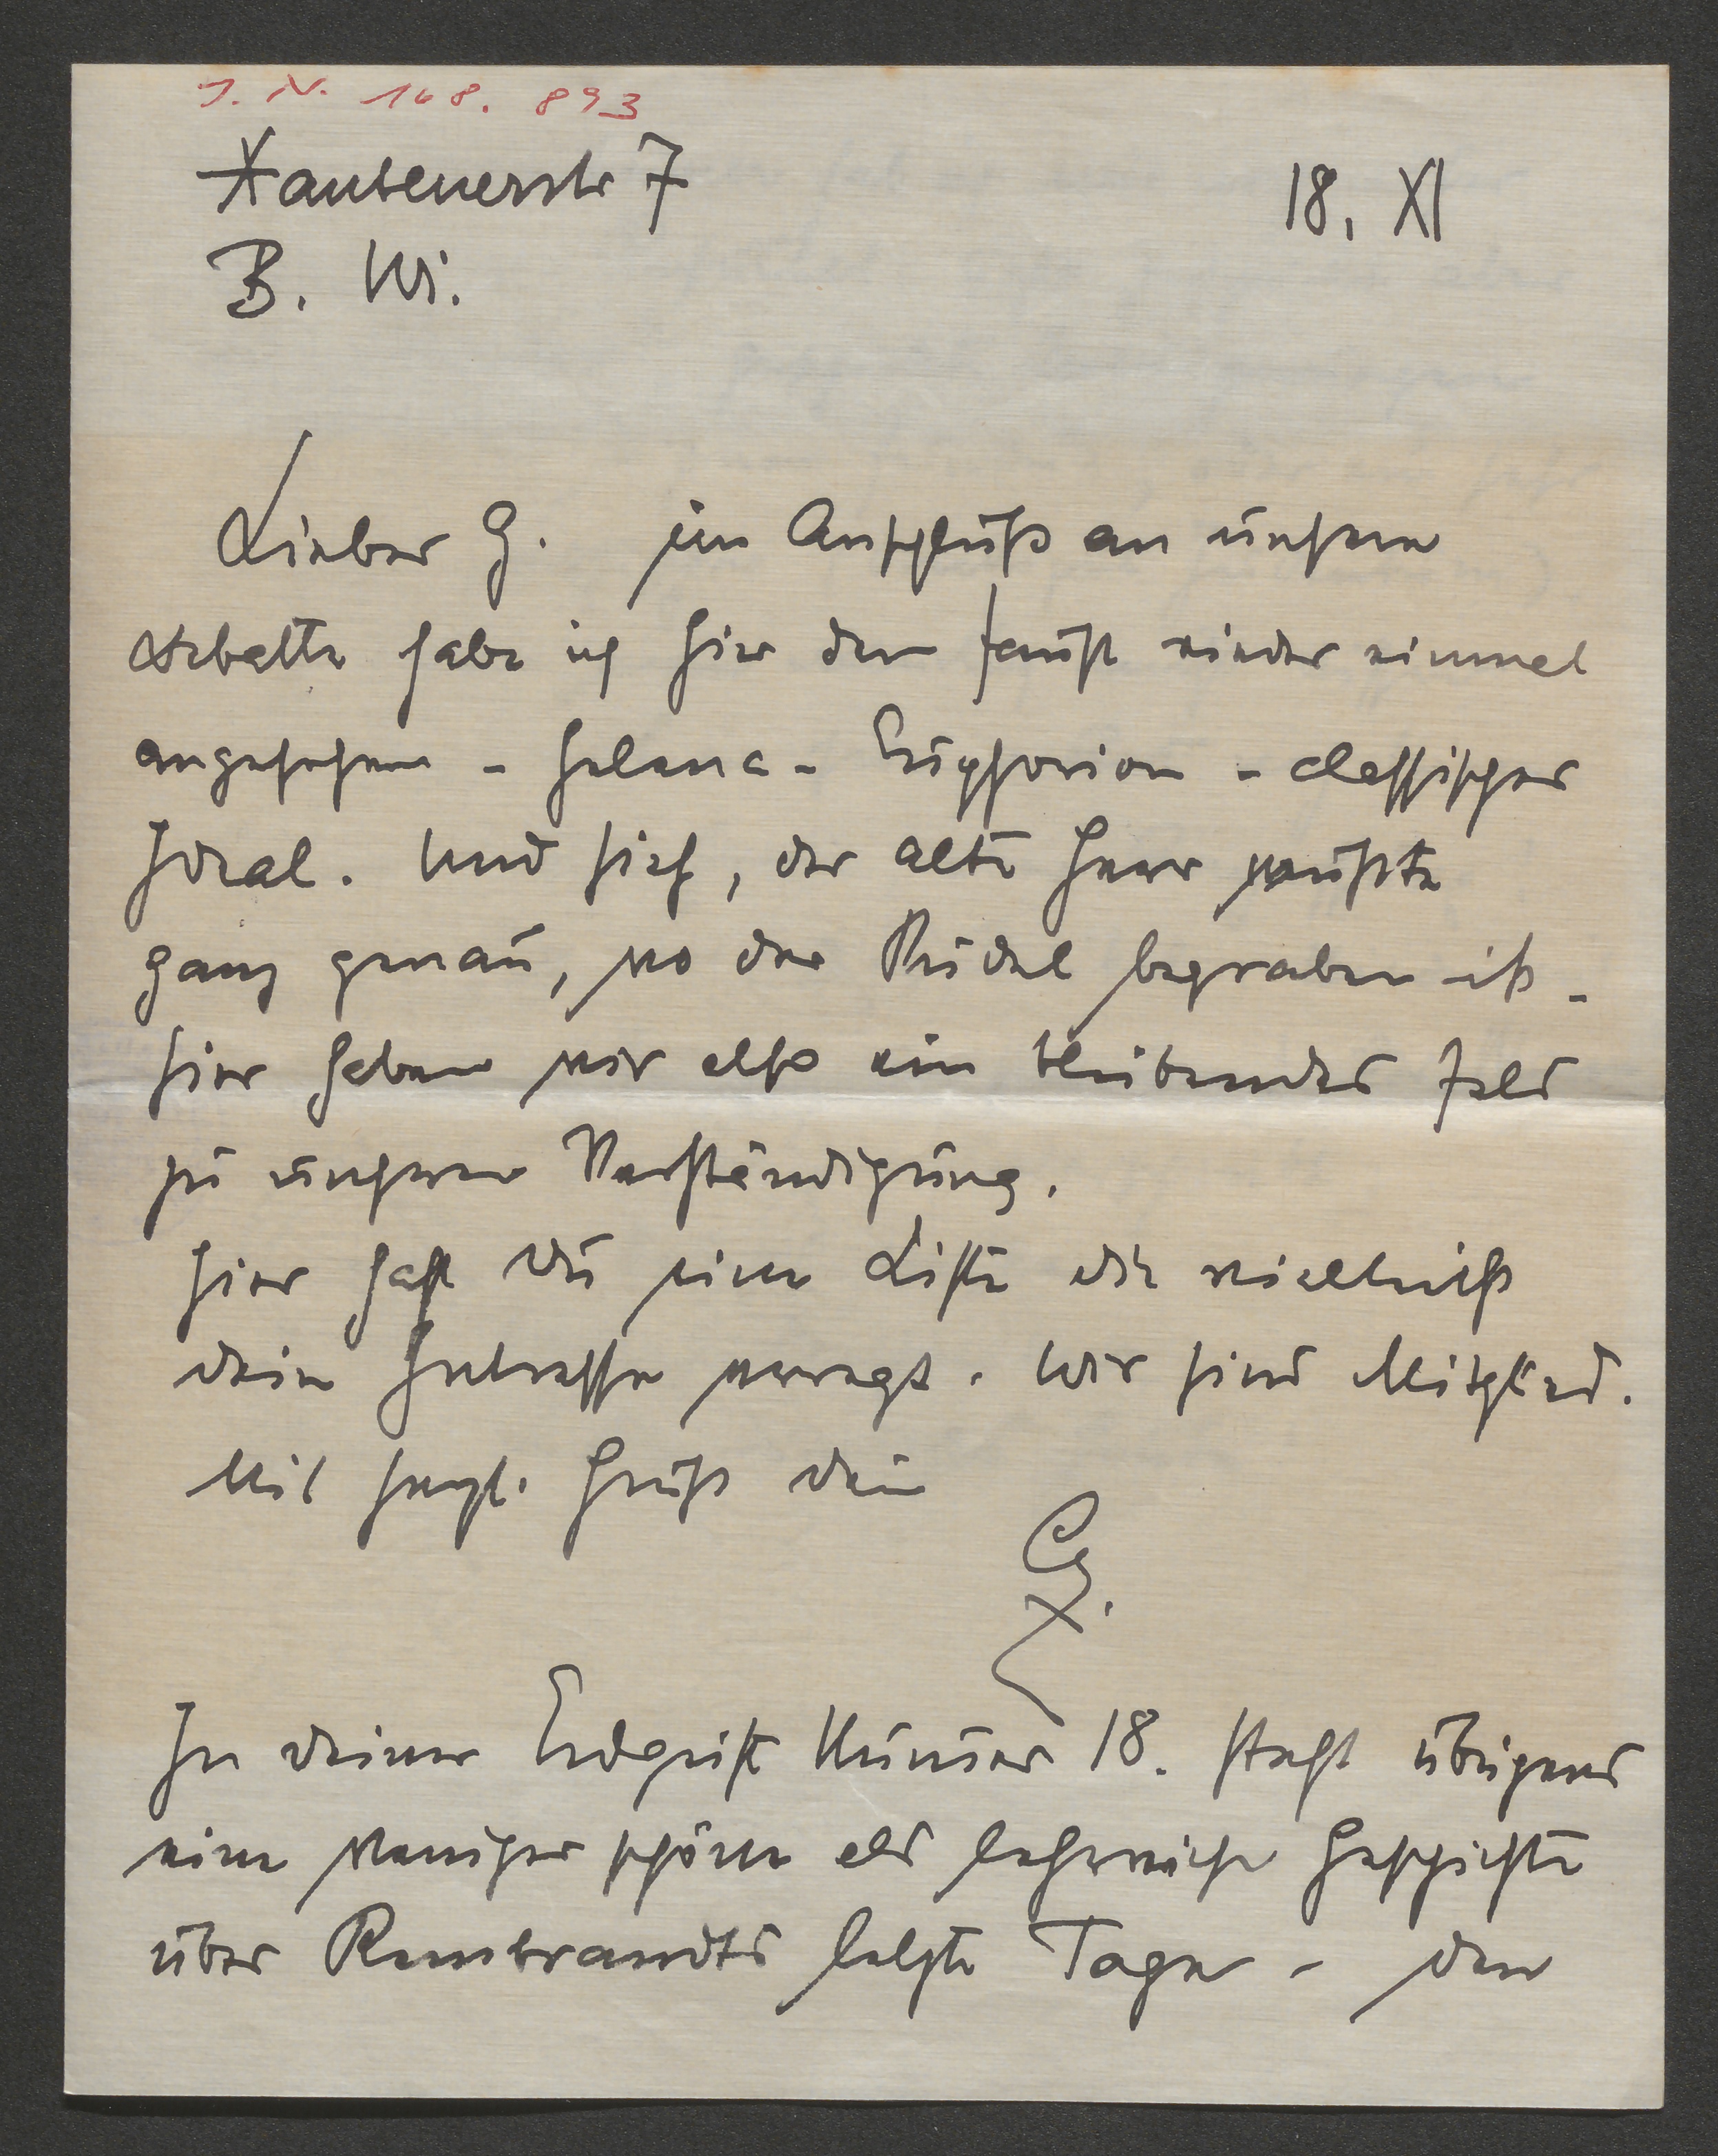 J. N. 168.893
Xantenerstr 7
18. XI
B. Wi.
Lieber G. im Anschluß an unsere
debatte habe ich hier den Faust wieder einmal
angesehen - Helena - Euphorion - classisches
Ideal. Und sieh, der alte Herr wußte
ganz genau, wo der Pudel begraben ist -
hier haben wir also ein bleibendes Feld
zu unserer Verständigung.
Hier hast du eine Liste die vielleicht
dein Interesse erregt. Wir sind Mitglied.
Mit herzl. Gruß dein
E.
In deiner Erdgeist Numer 18. steht übrigens
eine weniger schöne als lehrreiche Geschichte
über Rembrandts letzte Tage - den